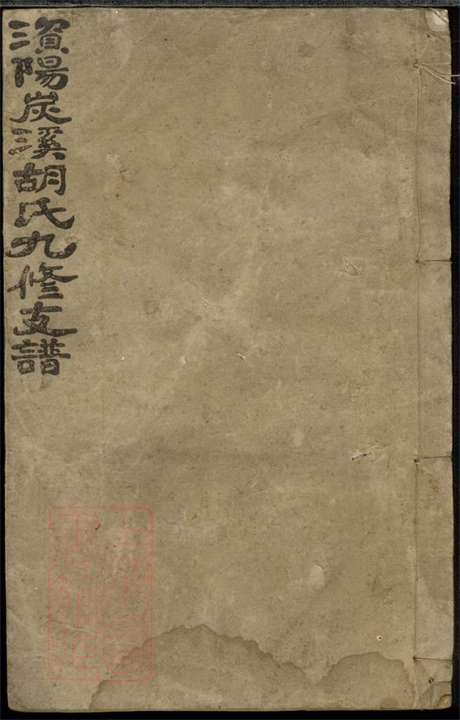 澬陽炭溪胡氏九修支譜